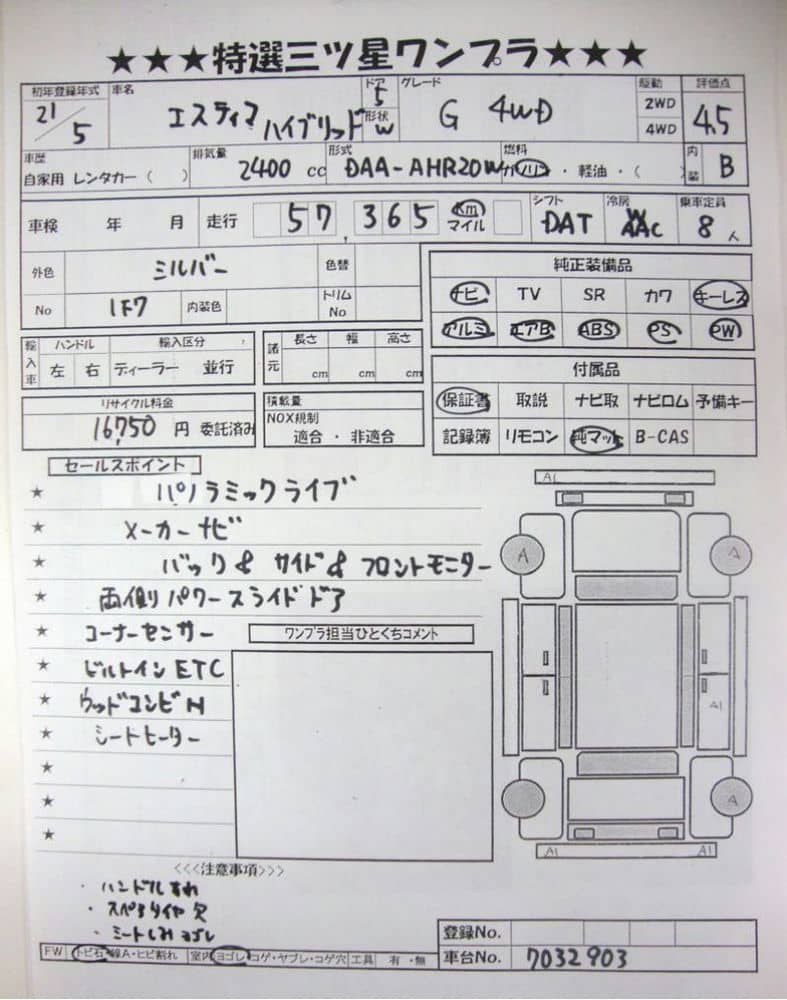 ★★★特選三ツ星ワンプラ★★★
初年登録年式 車名 ドア グレード 駆動 評価点
21/5 エスティマハイブリッド 5 形状 W G 4WD 2WD 4WD 4.5
車歴 排気量 形式 燃料 内装
自家用 レンタカー（ ） 2400 cc DAA-AHR20W ガソリン・軽油・（ ） B
車検 年 月 走行 57,365 Km マイル シフト DAT 冷房 AAC 乗車定員 8人
外色 シルバー 色替
No 1F7 内装色 トリムNo
純正装備品
ナビ TV SR カワ キーレス
アルミ エアB ABS PS PW
輸入車 ハンドル 輸入区分
左 右 ディーラー 並行
諸元 長さ 幅 高さ
cm cm cm
付属品
保証書 取説 ナビ取 ナビロム 予備キー
記録簿 リモコン 純マット B-CAS
リサイクル料金
16,750 円 委託済み
積載量
NOX規制
適合 ・ 非適合
セールスポイント
★ パノラミックライブ
★ メーカーナビ
★ バック & サイド & フロントモニター
★ 両側パワースライドドア
★ コーナーセンサー
ワンプラ担当ひとくちコメント
★ ビルトインETC
★ ウッドコンビH
★ シートヒーター
★
★
★
A1
A A
A1
A
A1 A1
<<<注意事項>>>
・ハンドルすれ
・スペアタイヤ欠
・シートしみヨゴレ
FW トビ石・線A・ヒビ割れ 室内 ヨゴレ・コゲ・ヤブレ・コゲ穴 工具 有・無
登録No.
車台No. 7032903